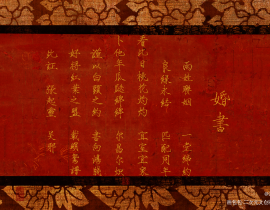 婚書
两姓聯姻 一堂締約
良緣永結 匹配同年
看此日桃花灼灼 宜室宜家
卜他年瓜瓞綿綿 尔昌尔炽
謹以白頭之約 書向鴻箋
好將紅葉之盟 載明鴛譜
此証 張起靈 吴邪